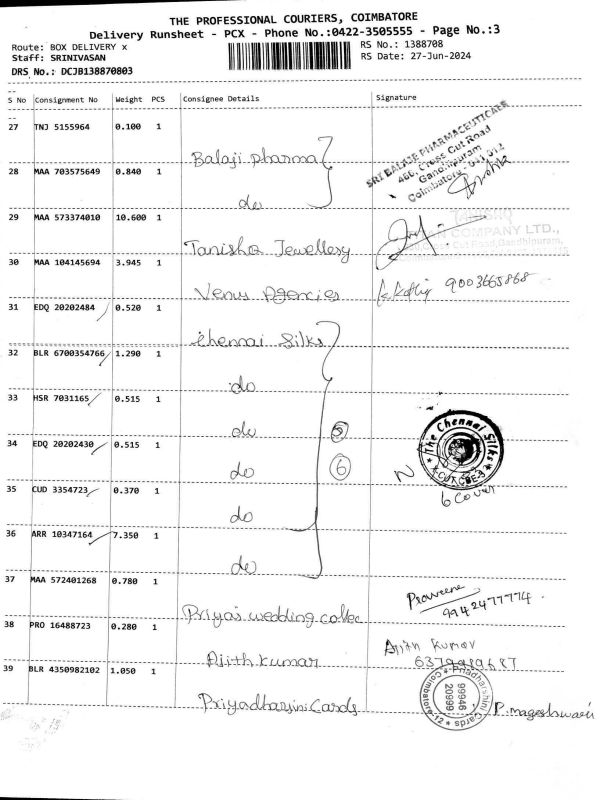 THE PROFESSIONAL COURIERS, COIMBATORE
Delivery Runsheet - PCX - Phone No.:0422-3505555 - Page No.:3
Route: BOX DELIVERY x
RS No.: 1388708
Staff: SRINIVASAN
RS Date: 27-Jun-2024
DRS No.: DCJB138870803
S No Consignment No Weight PCS Consignee Details Signature
27 TNJ 5155964 0.100 1 Balaji pharma
SRI BALAJI PHARMACEUTICALS
466, Cross Cut Road
Gandhipuram
Coimbatore - 641 012
28 MAA 703575649 0.840 1 do
29 MAA 573374010 10.600 1 Tanishq Jewellery
TANISHQ
COMPANY LTD.,
Cross Cut Road, Gandhipuram,
30 MAA 104145694 3.945 1 Venus Agencies 9003665868
31 EDQ 20202484 0.520 1 Chennai Silks
32 BLR 6700354766 1.290 1 do
33 HSR 7031165 0.515 1 do
34 EDQ 20202430 0.515 1 do 6
The Chennai Silks
6 cover
35 CUD 3354723 0.370 1 do
36 ARR 10347164 7.350 1 do
37 MAA 572401268 0.780 1 Priya's wedding collec
Praveena
9942477774
38 PRO 16488723 0.280 1 Ajith kumar
Ajith Kumar
6379989687
39 BLR 4350982102 1.050 1 Priyadharsini Cards
Priadharshini Cards
Coimbatore-12
999946
20999
P. mageshwari